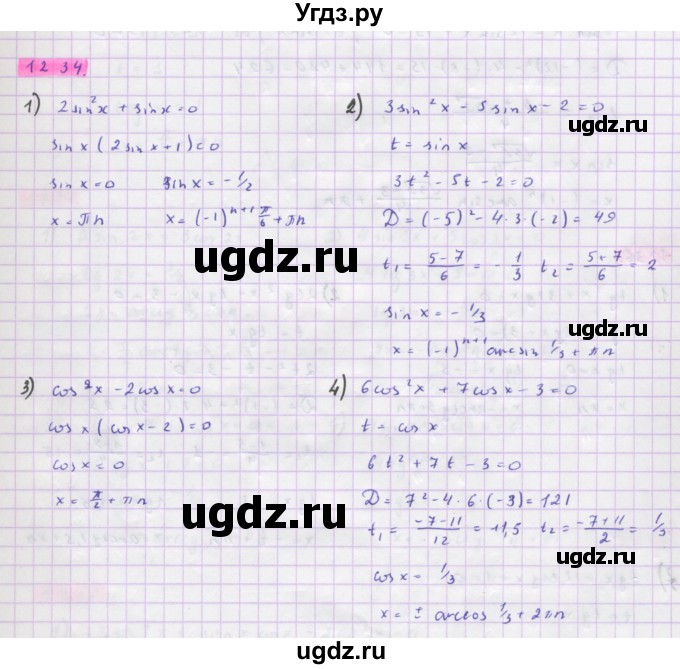 Угдз.ру
12 34.
1) 2sin²x + sinx = 0
sin x (2sin x + 1) = 0
sin x = 0 sin x = - 1/2
x = πn x = (-1)^(n+1) π/6 + πn
2) 3sin²x - 5sin x - 2 = 0
t = sin x
3t² - 5t - 2 = 0
D = (-5)² - 4·3·(-2) = 49
t₁ = (5-7)/6 = - 1/3 t₂ = (5+7)/6 = 2
sin x = - 1/3
x = (-1)^(n+1) arcsin 1/3 + πn
3) cos²x - 2cos x = 0
cos x (cos x - 2) = 0
cos x = 0
x = π/2 + πn
4) 6cos²x + 7cos x - 3 = 0
t = cos x
6t² + 7t - 3 = 0
D = 7² - 4·6·(-3) = 121
t₁ = (-7-11)/12 = -1,5 t₂ = (-7+11)/2 = 1/3
cos x = 1/3
x = ± arccos 1/3 + 2πn
ugdz.ru
ugdz.ru
ugdz.ru
ugdz.ru
ugdz.ru
ugdz.ru
ugdz.ru